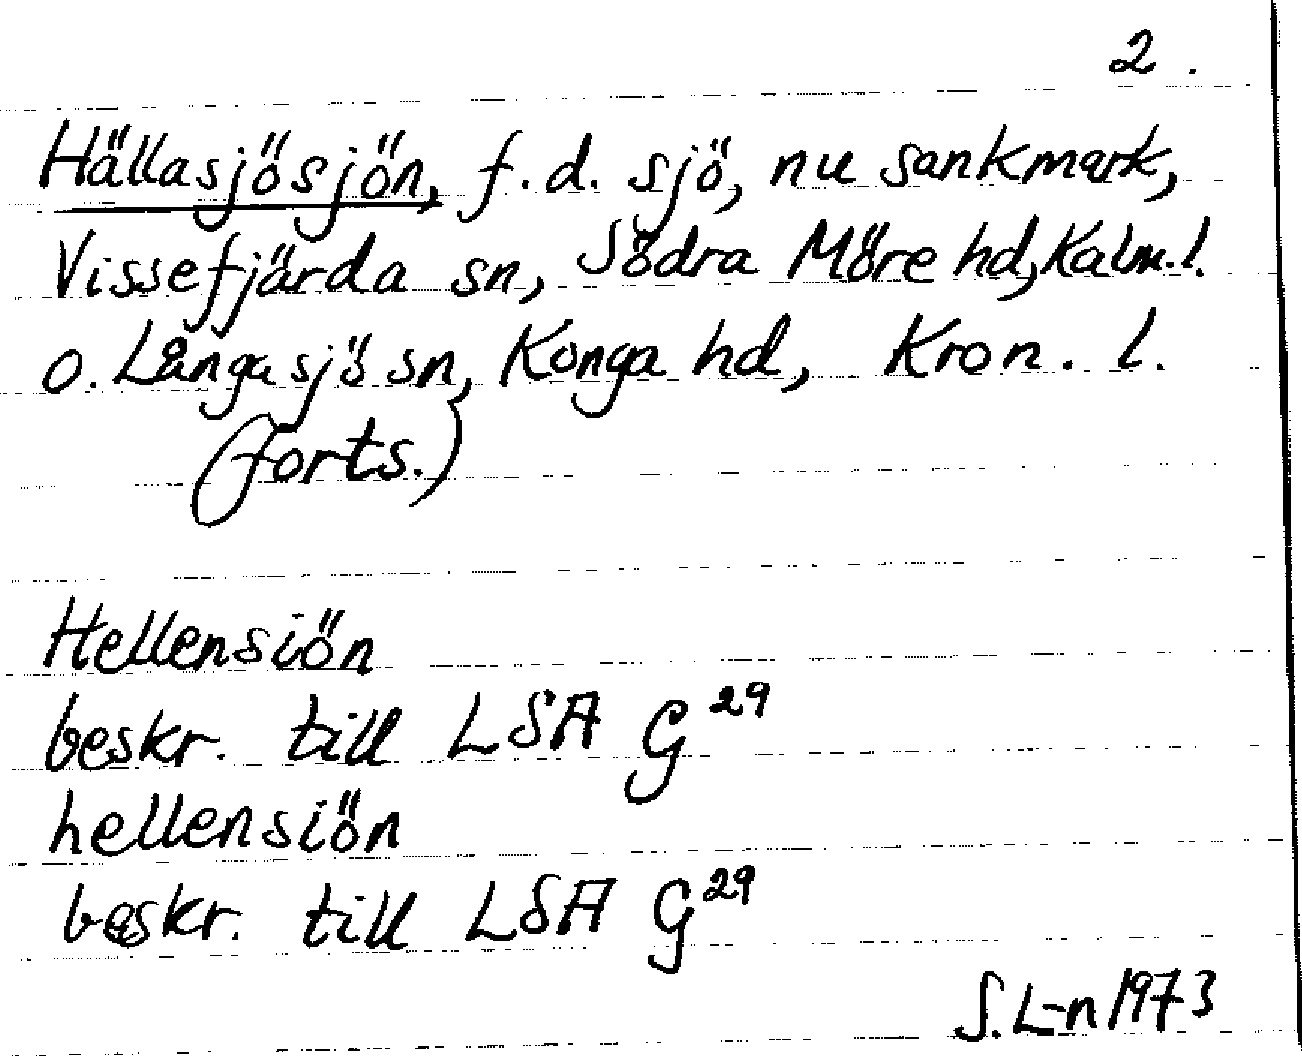 2.
Hällasjösjön, f.d. sjö, nu sankmark,
Vissefjärda sn, Södra Möre hd, Kalm.l.
o. Långasjö sn, Konga hd, Kron. l.
(forts.)
Hellensiön
beskr. till LSA G²⁹
hellensiön
beskr. till LSA G²⁹
S. L-n 1973